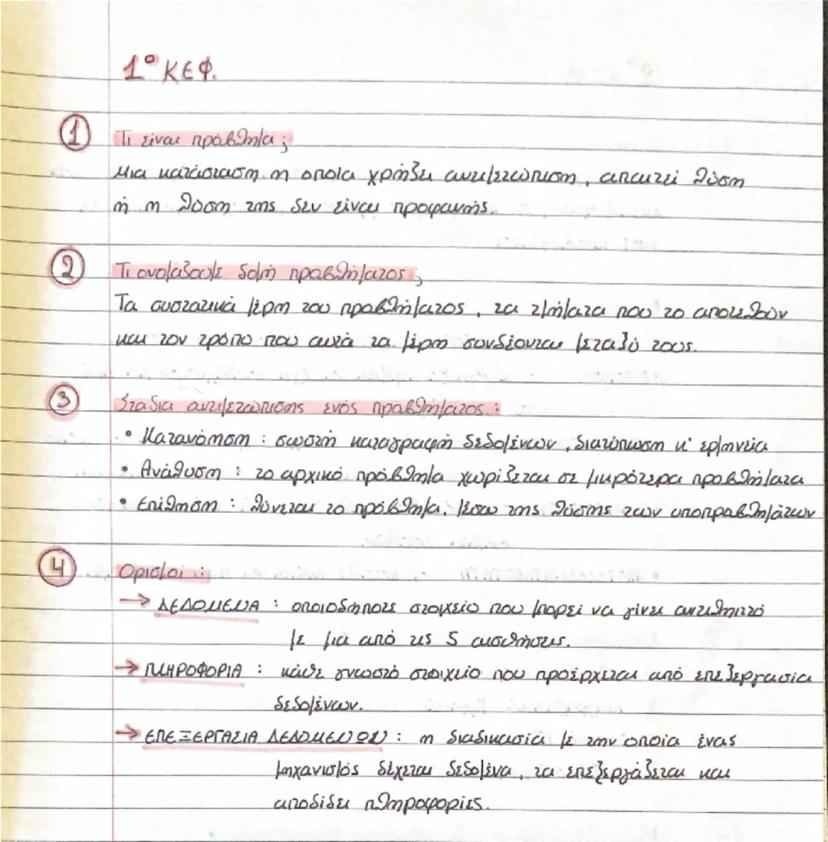 1° ΚΕΦ.
1 Τι είναι πρόβλημα;
Μια κατάσταση η οποία χρήζει αντιμετώπιση, απαιτεί λύση
ή η λύση της δεν είναι προφανής.
2 Τι ονομάζουμε δομή προβλήματος;
Τα συστατικά μέρη του προβλήματος, τα τμήματα που το αποτελούν
και τον τρόπο που αυτά τα μέρη συνδέονται μεταξύ τους.
3 Στάδια αντιμετώπισης ενός προβλήματος:
• Κατανόηση: σωστή καταγραφή δεδομένων, διατύπωση κ' ερμηνεία
• Ανάλυση: το αρχικό πρόβλημα χωρίζεται σε μικρότερα προβλήματα
• Επίλυση: λύνεται το πρόβλημα, μέσω της λύσης των υποπροβλημάτων
4 Ορισμοί:
→ ΔΕΔΟΜΕΝΑ: οποιοδήποτε στοιχείο που μπορεί να γίνει αντιληπτό
με μια από τις 5 αισθήσεις.
→ ΠΛΗΡΟΦΟΡΙΑ: κάθε γνωστό στοιχείο που προέρχεται από επεξεργασία
δεδομένων.
→ ΕΠΕΞΕΡΓΑΣΙΑ ΔΕΔΟΜΕΝΩΝ: η διαδικασία με την οποία ένας
μηχανισμός δέχεται δεδομένα, τα επεξεργάζεται και
αποδίδει πληροφορίες.